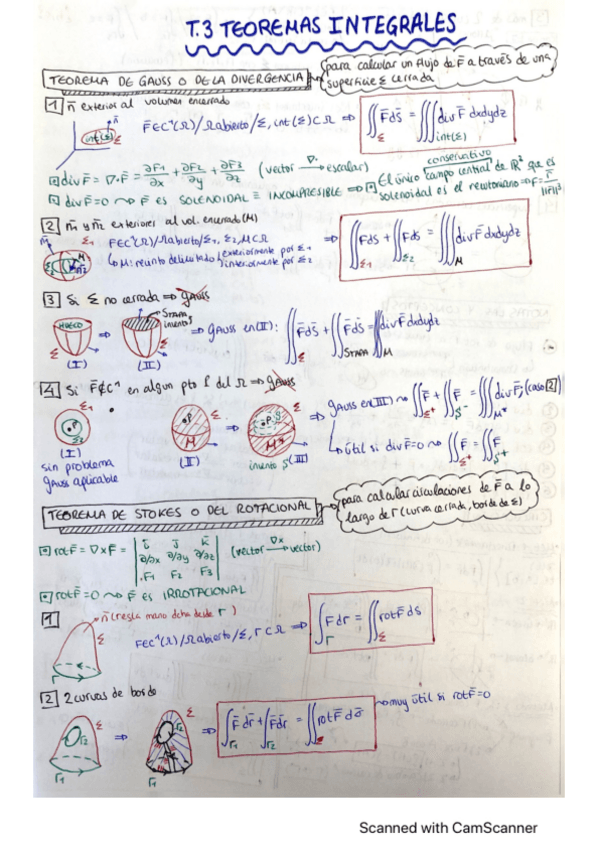 T.3 TEOREMAS INTEGRALES
TEOREMA DE GAUSS O DE LA DIVERGENCIA
para calcular un flujo de F̄ a través de una superficie Σ cerrada
1 n̄ exterior al volumen encerrado
n̄
int(Σ)
Σ
F̄∈C¹(Ω)/Ω abierto/Σ, int(Σ)⊂Ω ⇒ ∬_Σ F̄ds̄ = ∭_int(Σ) div F̄ dxdydz
div F̄ = ∇·F̄ = ∂F1/∂x + ∂F2/∂y + ∂F3/∂z (vector ∇· → escalar)
div F̄=0 ⤳ F̄ es SOLENOIDAL ≡ INCOMPRESIBLE ⇒ El único campo central de ℝ² que es
conservativo
solenoidal es el newtoniano → F̄= r̄/||r̄||³
2 n̄1 y n̄2 exteriores al vol. encerrado (M)
Σ1
M
n̄2
F∈C¹(Ω)/Ω abierto/Σ1, Σ2, M⊂Ω
↳ M: recinto delimitado exteriormente por Σ1
interiormente por Σ2
⇒ ∬_Σ1 F̄ds + ∬_Σ2 F̄ds = ∭_M div F̄ dxdydz
3 Si Σ no cerrada ⇒ gauss
HUECO
Σ
(I)
⇒
STAPA
invento
(II)
⇒ gauss en (II): ∬_Σ F̄ds̄ + ∬_STAPA F̄ds̄ = ∭_M div F̄ dxdydz
4 Si F̄∉C¹ en algun pto P del Ω ⇒ gauss
Σ1
P
Σ2
(I)
sin problema
gauss aplicable
P
M
(II)
⇒
P
S
M*
invento S (III)
⇒ gauss en (III) ⤳ ∬_Σ+ F̄ + ∬_S- F̄ = ∭_M* div F̄; (caso 2)
↳ útil si div F̄=0 ⤳ ∬_Σ+ F̄ = ∬_S+ F̄
TEOREMA DE STOKES O DEL ROTACIONAL
para calcular circulaciones de F̄ a lo largo de Γ (curva cerrada, borde de Σ)
rot F̄ = ∇xF̄ = | ī j̄ k̄ |
| ∂/∂x ∂/∂y ∂/∂z |
| F1 F2 F3 |
(vector ∇x → vector)
rot F̄=0 ⤳ F̄ es IRROTACIONAL
1
n̄ (regla mano dcha desde Γ)
Σ
Γ
F∈C¹(Ω)/Ω abierto/Σ, Γ⊂Ω ⇒ ∫_Γ F̄dr̄ = ∬_Σ rot F̄ ds̄
2 2 curvas de borde
Σ
Γ2
Γ1
⇒
Σ
Γ2
Γ1
⇒ ∫_Γ1 F̄dr̄ + ∫_Γ2 F̄dr̄ = ∬_Σ rot F̄ dσ̄
⤳ muy útil si rot F̄=0
Scanned with CamScanner